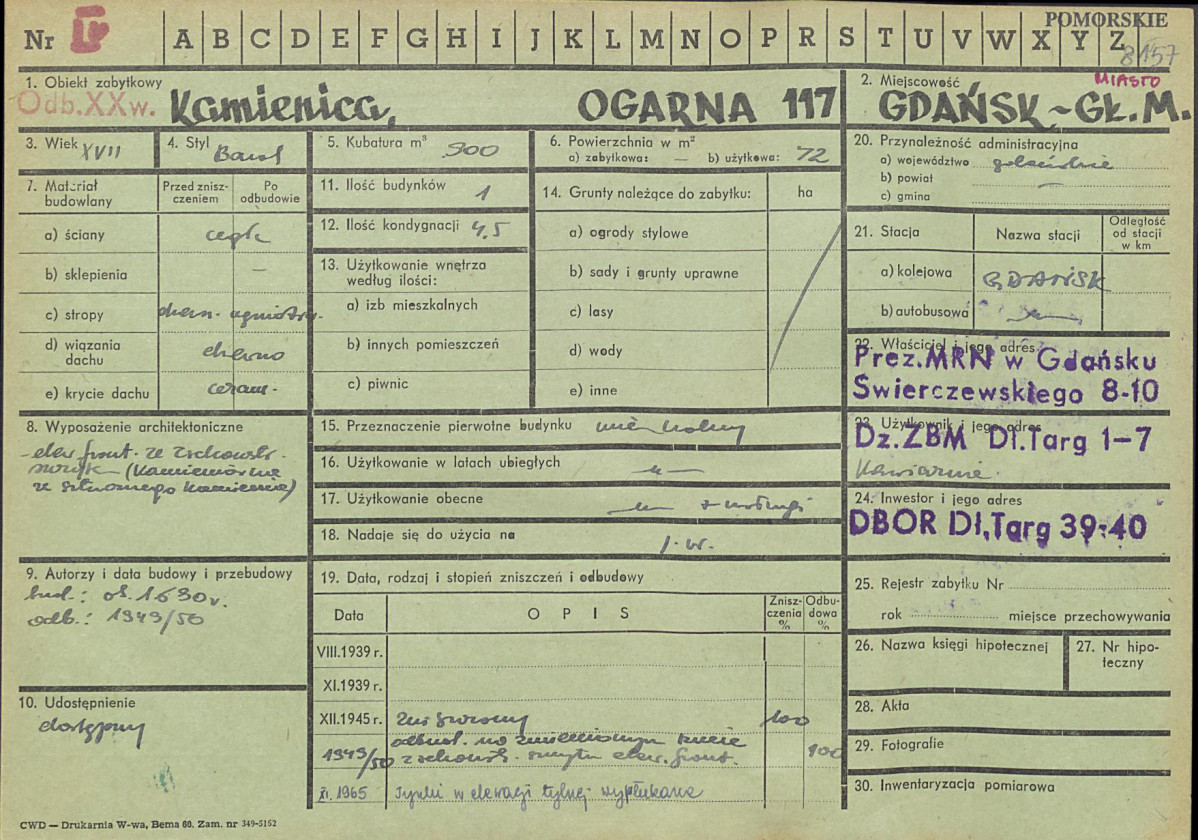 POMORSKIE
Nr I A B C D E F G H I J K L M N O P R S T U V W X Y Z
8157
1. Obiekt zabytkowy
Odb.XXw. Kamienica, OGARNA 117
2. Miejscowość MIASTO
GDAŃSK-GŁ.M.
3. Wiek XVII
4. Styl Barok
5. Kubatura m³ 900
6. Powierzchnia w m²
a) zabytkowa: — b) użytkowa: 72
7. Materiał budowlany
Przed zniszczeniem
Po odbudowie
a) ściany cegła
b) sklepienia —
c) stropy drewn. ogniotrw.
d) wiązania dachu drewno
e) krycie dachu ceram.
8. Wyposażenie architektoniczne
elew. front. ze zachowk.
(Kamieniarka
ze sztucznego kamienia)
9. Autorzy i data budowy i przebudowy
bud.: ok. 1630 r.
odb.: 1949/50
10. Udostępnienie
dostępny
11. Ilość budynków 1
12. Ilość kondygnacji 4,5
13. Użytkowanie wnętrza
według ilości:
a) izb mieszkalnych
b) innych pomieszczeń
c) piwnic
14. Grunty należące do zabytku: ha
a) ogrody stylowe
b) sady i grunty uprawne
c) lasy
d) wody
e) inne
15. Przeznaczenie pierwotne budynku mieszkalny
16. Użytkowanie w latach ubiegłych —„—
17. Użytkowanie obecne —„— + usługi
18. Nadaje się do użycia na j.w.
19. Data, rodzaj i stopień zniszczeń i odbudowy
Data
O P I S
Zniszczenia %
Odbudowa %
VIII.1939 r.
XI.1939 r.
XII.1945 r. zniszczony 100
1949/50 odbud. na zmienionym rzucie 100
z zachow. szczytu elew. front.
XI. 1965 Tynki w elewacji tylnej wypłukane
20. Przynależność administracyjna
a) województwo gdańskie
b) powiat —
c) gmina
21. Stacja
Nazwa stacji
Odległość od stacji w km
a) kolejowa GDAŃSK
b) autobusowa —„—
22. Właściciel i jego adres
Prez.MRN w Gdańsku
Świerczewskiego 8-10
23. Użytkownik i jego adres
Dz.ZBM Dł.Targ 1-7
Kawiarnia
24. Inwestor i jego adres
DBOR Dł.Targ 39-40
25. Rejestr zabytku Nr
rok miejsce przechowywania
26. Nazwa księgi hipotecznej
27. Nr hipoteczny
28. Akta
29. Fotografie
30. Inwentaryzacja pomiarowa
CWD — Drukarnia W-wa, Bema 60. Zam. nr 349-5152